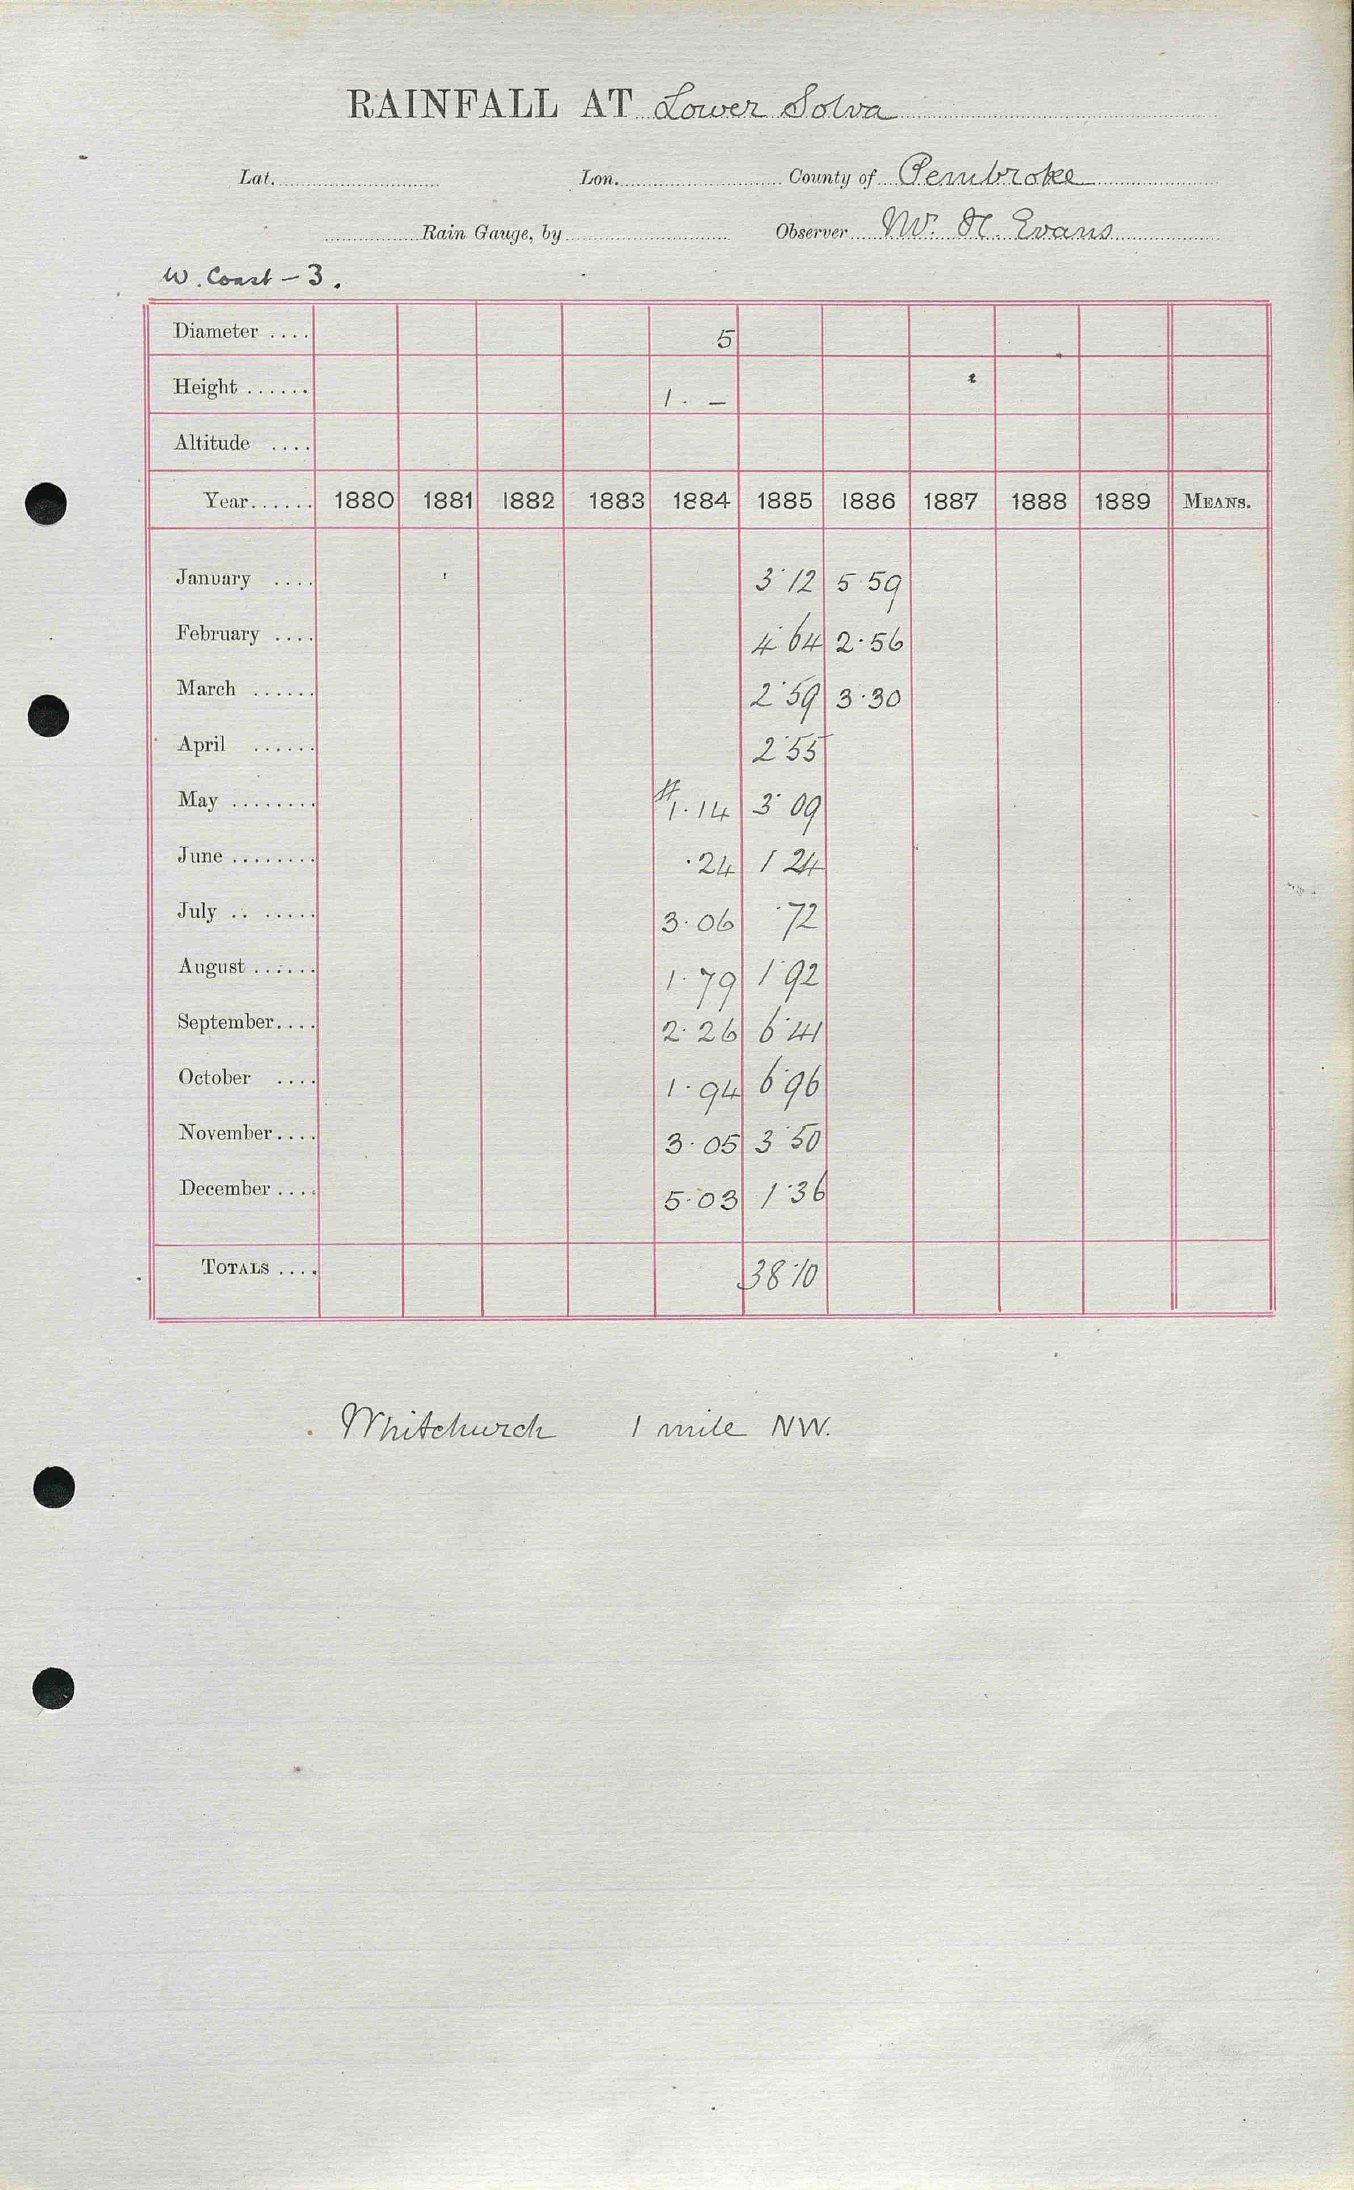 RAINFALL AT Lower Solva
Lat. Lon. County of Pembroke
Rain Gauge, by Observer W. H. Evans
W. Coast – 3.
Diameter .... 5
Height ...... 1. –
Altitude ....
Year...... 1880 1881 1882 1883 1884 1885 1886 1887 1888 1889 MEANS.
January .... 3.12 5.59
February .... 4.64 2.56
March ...... 2.59 3.30
April ...... 2.55
May ........ #1.14 3.09
June ........ .24 1.24
July .. ..... 3.06 .72
August ...... 1.79 1.92
September.... 2.26 6.41
October .... 1.94 6.96
November.... 3.05 3.50
December .... 5.03 1.36
TOTALS .... 38.10
Whitchurch 1 mile NW.